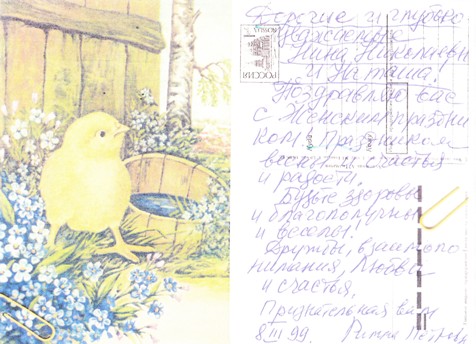 Дорогие и глубоко
Уважаемые
Нина Николаевна
и Наташа!
Поздравляю Вас
с Женским праздни
ком - Праздником
весны и счастья
и радости.
Будьте здоровы
и благополучны
и веселы!
Дружбы, взаимопо
нимания, Любви
и счастья,
Признательная вам
8 III 99. Петров
РОССИЯ
ROSSIJA
Куда
Кому